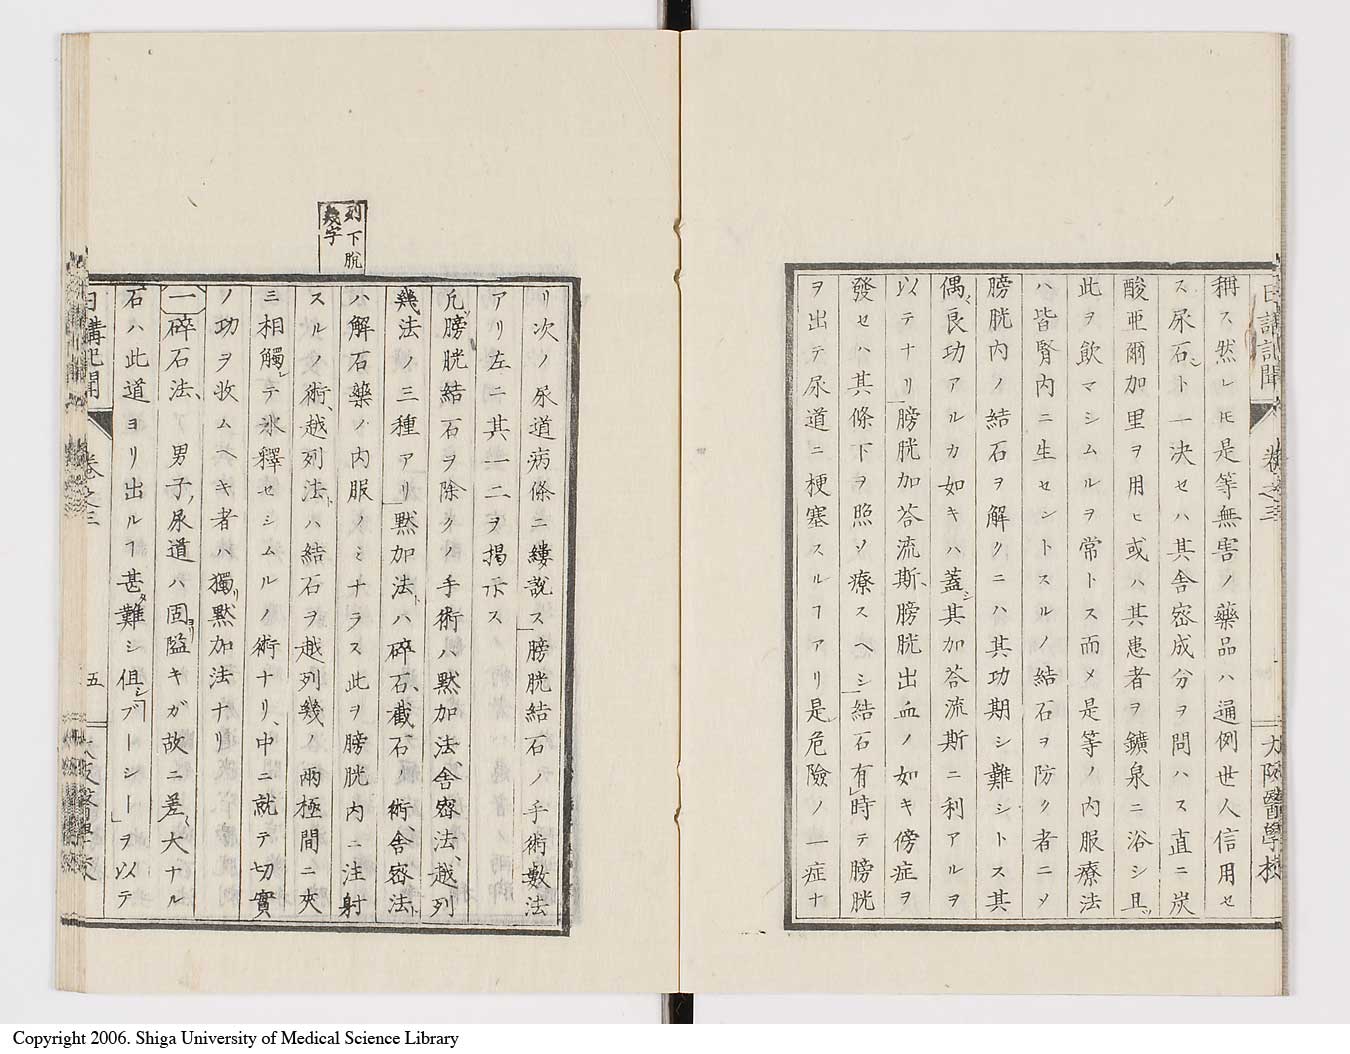 日講記聞 卷之三 大阪醫學校
稱ス然レ𪜈是等無害ノ藥品ハ通例世人信用セ
ス尿石ト一決セハ其舎密成分ヲ問ハス直ニ炭
酸亜爾加里ヲ用ヒ或ハ其患者ヲ鑛泉ニ浴シ且ツ
此ヲ飲マシムルヲ常トス而メ是等ノ内服療法
ハ皆腎内ニ生セントスルノ結石ヲ防クノ者ニメ
膀胱内ノ結石ヲ解クニハ其功期シ難シトス其
偶良功アルカ如キハ蓋シ其加荅流斯ニ利アルヲ
以テナリ膀胱加荅流斯、膀胱出血ノ如キ傍症ヲ
發セハ其條下ヲ照ソ療スヘシ結石有時テ膀胱
ヲ出テ尿道ニ梗塞スルヿアリ是危險ノ一症ナ
列下脫
幾字
リ次ノ尿道病條ニ縷說ス膀胱結石ノ手術數法
アリ左ニ其一二ヲ揭示ス
凡膀胱結石ヲ除クノ手術ハ黙加法、舎密法、越列
幾法ノ三種アリ黙加法トハ碎石、截石ノ術、舎密法ト
ハ解石藥ノ内服ノミナラス此ヲ膀胱内ニ注射
スルノ術、越列法トハ結石ヲ越列幾ノ兩極間ニ夾
三相觸レテ氷釋セシムルノ術ナリ、中ニ就テ切實
ノ功ヲ收ムヘキ者ハ獨リ黙加法ナリ
一碎石法、男子ノ尿道ハ固ヨリ隘キガ故ニ差大ナル
石ハ此道ヨリ出ルヿ甚タ難シ但シ「ブーシー」ヲ以テ
日講記聞 卷之三 五 大阪醫學校
Copyright 2006. Shiga University of Medical Science Library